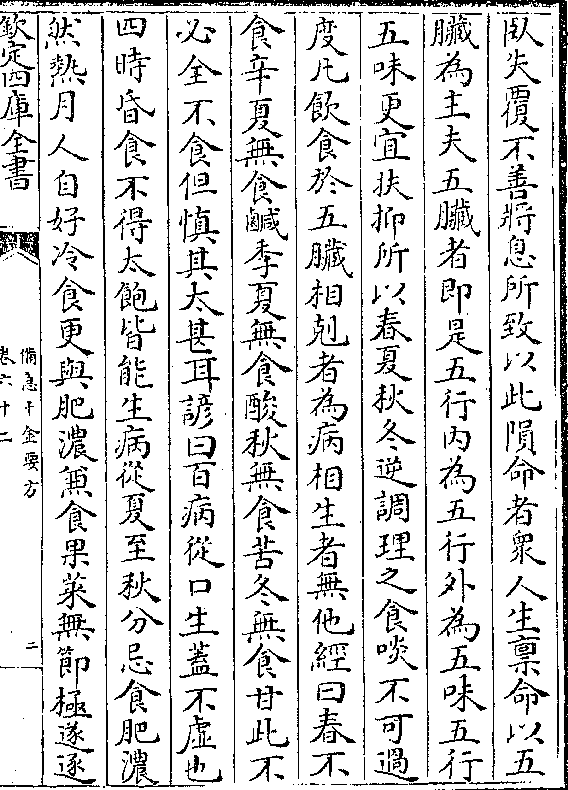 臥失覆不善將息所致以此隕命者衆人生禀命以五
臟為主夫五臟者即是五行内為五行外為五味五行
五味更宜扶抑所以春夏秋冬逆調理之食啖不可過
度凡飲食於五臟相剋者為病相生者無他經曰春不
食辛夏無食鹹季夏無食酸秋無食苦冬無食甘此不
必全不食但慎其太甚耳諺曰百病從口生蓋不虛也
四時昏食不得太飽皆能生病從夏至秋分忌食肥濃
然熱月人自好冷食更與肥濃兼食果菜無節極遂逐
欽定四庫全書
備急千金要方
卷六十二
二